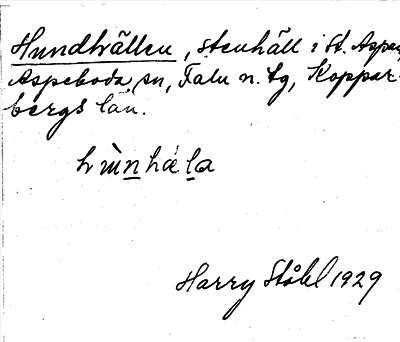 Hundhällen, stenhäll i St. Aspan,
Aspeboda sn, Falu n. tg, Koppar-
bergs län.
Harry Ståhl 1929